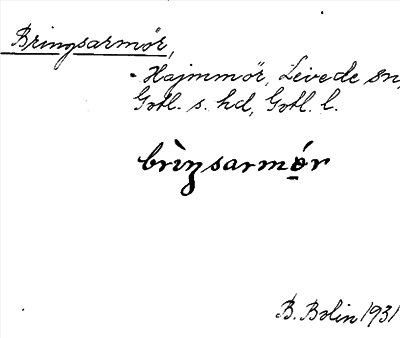 Bringsarmör,
Hajmmör, Levede sn,
Gotl. s. hd, Gotl. l.
brìŋsarmǫ́r
B. Bolin 1931